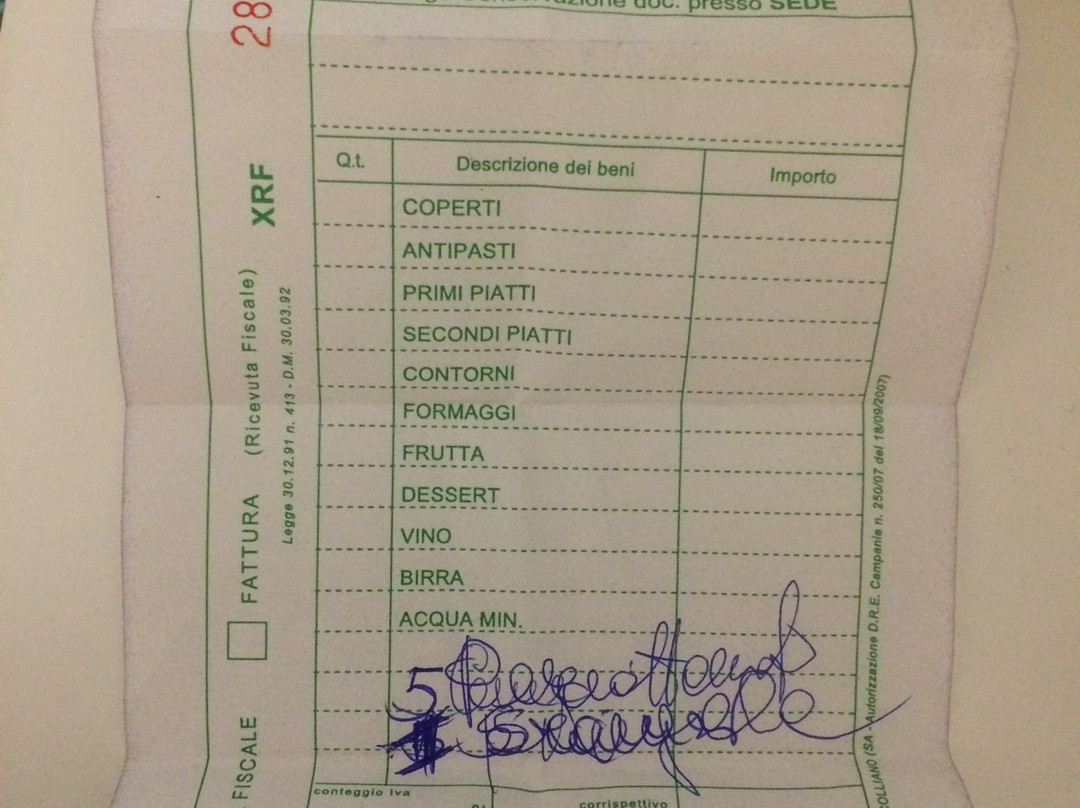 doc. presso SEDE
28
Q.t. Descrizione dei beni Importo
COPERTI
ANTIPASTI
PRIMI PIATTI
SECONDI PIATTI
CONTORNI
FORMAGGI
FRUTTA
DESSERT
VINO
BIRRA
ACQUA MIN.
5
conteggio Iva
corrispettivo
XRF
FATTURA (Ricevuta Fiscale)
Legge 30.12.91 n. 413 - D.M. 30.03.92
FISCALE
(SA - Autorizzazione D.R.E. Campania n. 250/07 del 18/09/2007)